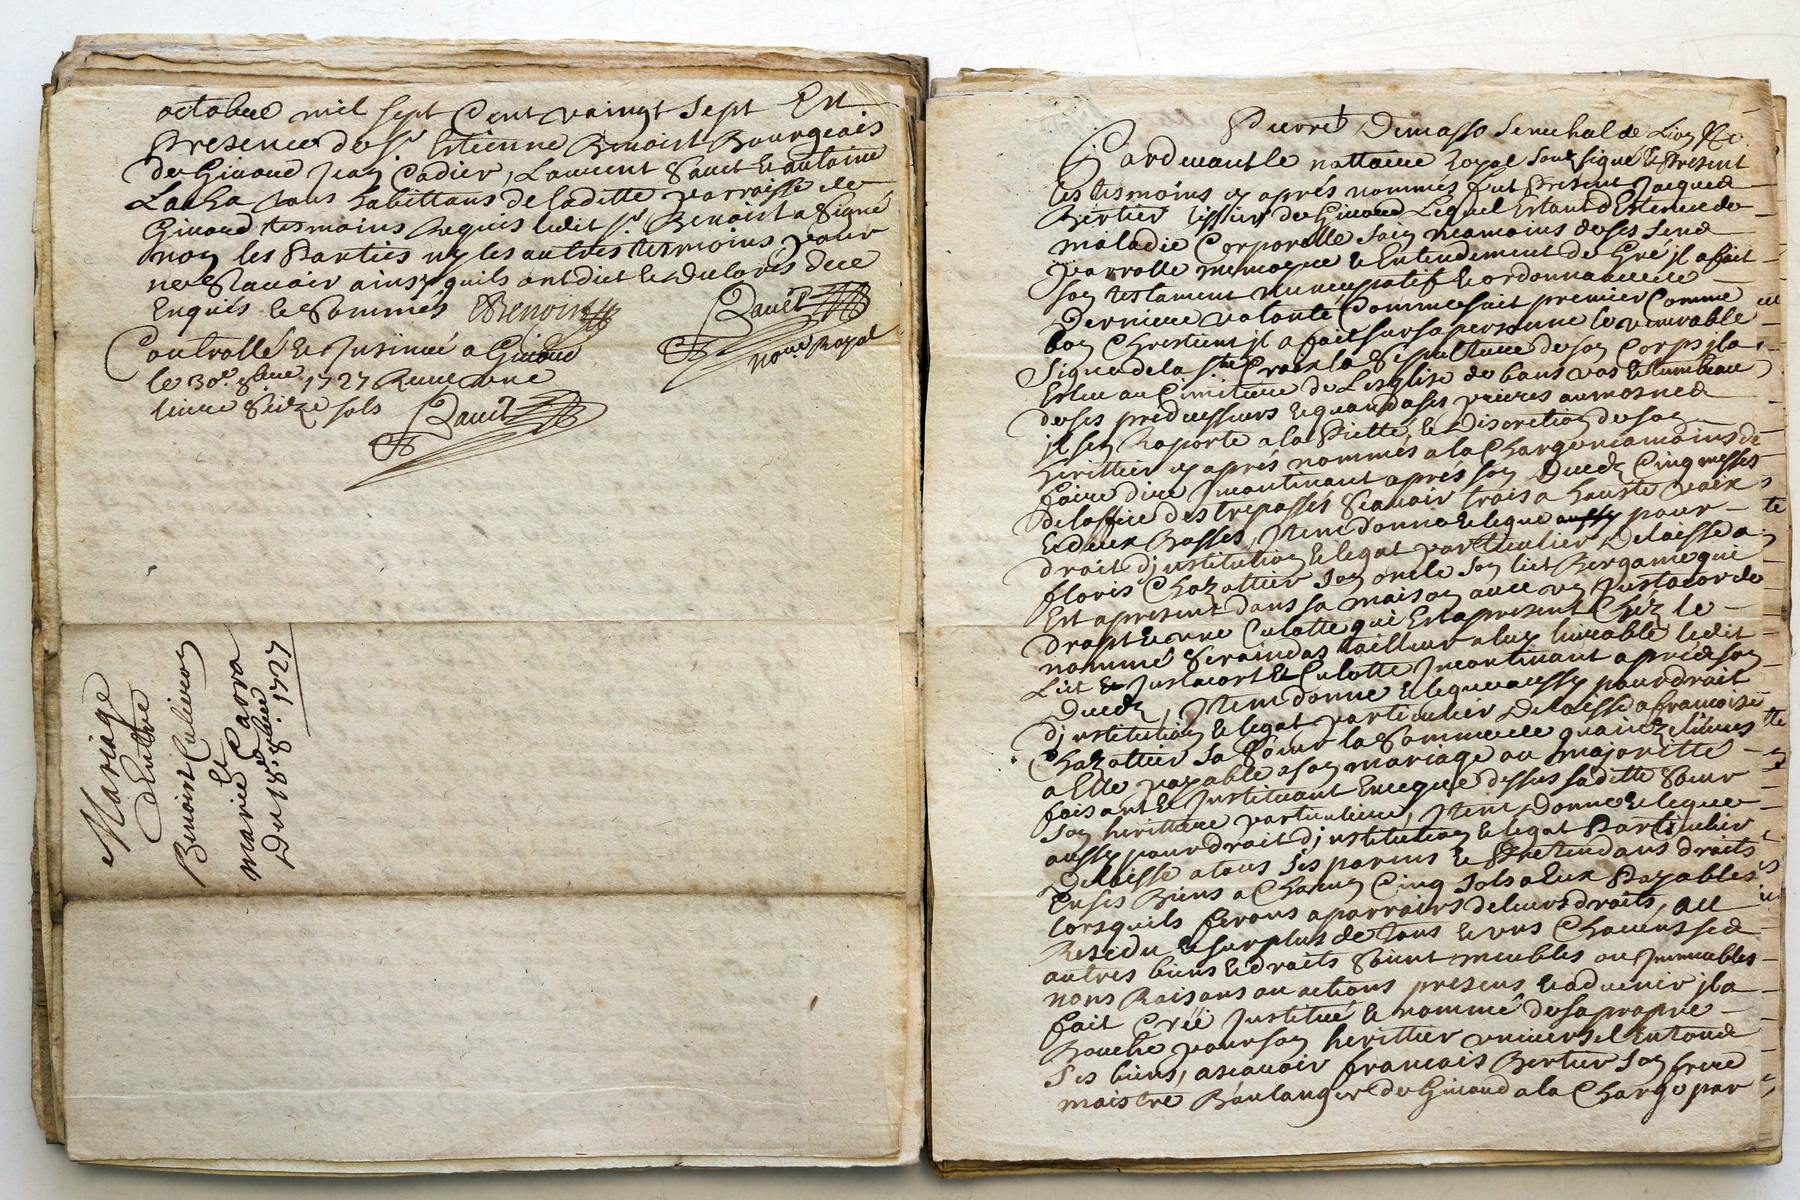 octobre mil sept Cent vaingt sept En
presence de Sr Etienne Benoist Bourgeois
de Givaud Jean Cadier, Laurent Sauet & antoine
La cha tous habittans de laditte parroisse de
Givaud tesmoins Requis ledit Sr Benoist a signé
non les Parties ny les autres tesmoins pour
ne sçauoir ainsy quils ont dict & du lors dece
Enquis & sommés EBenoist
Controllé & Insinué a Givaud
le 30e 8bre 1727 Receu une
liure seize sols
nore Royal
Mariage
d'Entre
Benoist
Et
marie
Du 18e 8bre 1727
Pierre Demasso senechal de Lion &c
Pardeuant le nottaire royal sousigné & present
les tesmoins cy aprés nommés fut present Jacques
Bertier tissier de Givaud Lequel Estand Detenu de
maladie Corporelle sain neamoins de ses sens
parrolle memoyre & Entendement de Gré il a fait
son testament nuncupatif & ordonnance de
Derniere volonté Comme s'uit premier Comme
bon Chrestient il a fait sur sa personne le venerable
signe de la Ste Croix la sepulture de son Corps il a
Eslue au Cimitiere de Lesglise de & tumbeau
de ses predecessurs & quand a ses prieres aumosnes
il sen Raporte a la Piette, & Discretion de son
herittier cy aprés nommés a la Charge neamoins de
faire dire Incontinant aprés son Decedz Cinq messes
de loffice des trepassés sçauoir trois a haute voix
& deux Basses, Item donne & legue pour
droit d'institution & legat particulier Delaisse a
floris Chazottier son oncle son lict Bergame qui
Est apresent dans sa maison auec un Justacor de
drapt & une Culotte qui Est apresent Chéz le
nommé tailleur a luy liurable ledit
Lict & Justacort & Culotte Incontinant apres son
Decedz, Item donne & legue aussy pour droit
d'institution & legat particulier Delaisse a francoise
Chazottier sa sœur la somme de quainze liures
a Elle payable a son mariage ou majoritté
faisant & Instituant En ce que dessus saditte sœur
son herittiere particuliere, Item Donne & legue
aussy pour droit d'institution & legat Particulier
Delaisse a tous ses parens & Pretendans droits
En ses Biens a Chacun Cinq sols a Eux Payables
lorsquils feront aparroirs de leurs droits, au
Residu & surplus de tous & uns Chacuns ses
autres biens & droits soient meubles ou Immeubles
noms Raisons ou actions presens & aduenir il a
fait Créé Institué & nommé de sa propre
Bouche pour son herittier uniuersel En tous
ses biens, ascauoir francois Bertier son frere
maistre Boulanger de Givaud a la Charge par